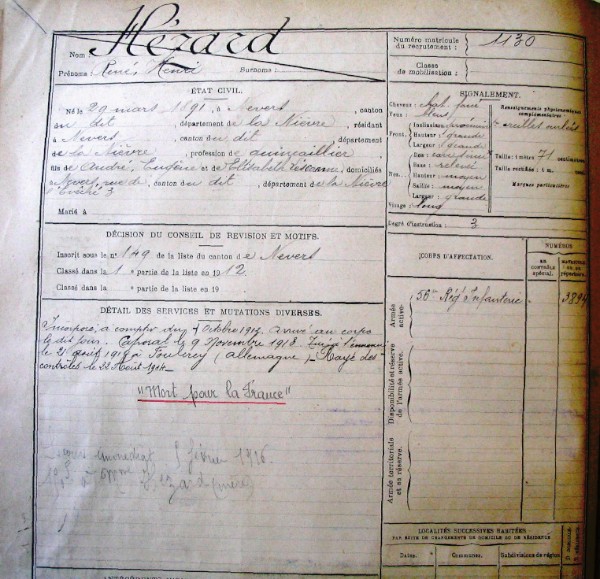 Nom: Hézard
Prénoms: René, Henri Surnoms:
Numéro matricule du recrutement: 1130
Classe de mobilisation:
ÉTAT CIVIL.
Né le 29 mars 1891, à Nevers, canton
du dit, département de la Nièvre, résidant
à Nevers, canton du dit, département
de la Nièvre, profession de quincaillier
fils de André, Eugène et de domiciliés
à Nevers, rue de canton du dit, département de la Nièvre
Marié à
DÉCISION DU CONSEIL DE RÉVISION ET MOTIFS.
Inscrit sous le n° 149 de la liste du canton de Nevers
Classé dans la 1e partie de la liste en 1912
Classé dans la e partie de la liste en 19
DÉTAIL DES SERVICES ET MUTATIONS DIVERSES.
Incorporé à compter du Octobre 1912. Arrivé au corps
le dit jour. Caporal le 9 Novembre 1913. Tué à l'ennemi
le 21 août 1914 à (Allemagne). Rayé des
contrôles le 22 Août 1914.
"Mort pour la France"
février 1916.
Hézard
SIGNALEMENT.
Cheveux: chat. foncé
Yeux: bleus
Inclinaison:
Hauteur: grande
Largeur: grande
Dos:
Base: relevé
Hauteur: moyen
Saillie: moyen
Largeur: grande
Visage: long
Renseignements physionomiques complémentaires:
oreilles ourlées
Taille: 1 mètre 71 centimètres.
Taille rectifiée: 1 mètre
Marques particulières:
Degré d'instruction: 3
CORPS D'AFFECTATION.
NUMÉROS
au contrôle spécial.
au répertoire.
Armée active.
56e Rég. d'Infanterie
Disponibilité et réserve de l'armée active.
Armée territoriale et sa réserve.
LOCALITÉS SUCCESSIVES HABITÉES
PAR SUITE DE CHANGEMENTS DE DOMICILE OU DE RÉSIDENCE
Dates.
Communes.
Subdivisions de région.